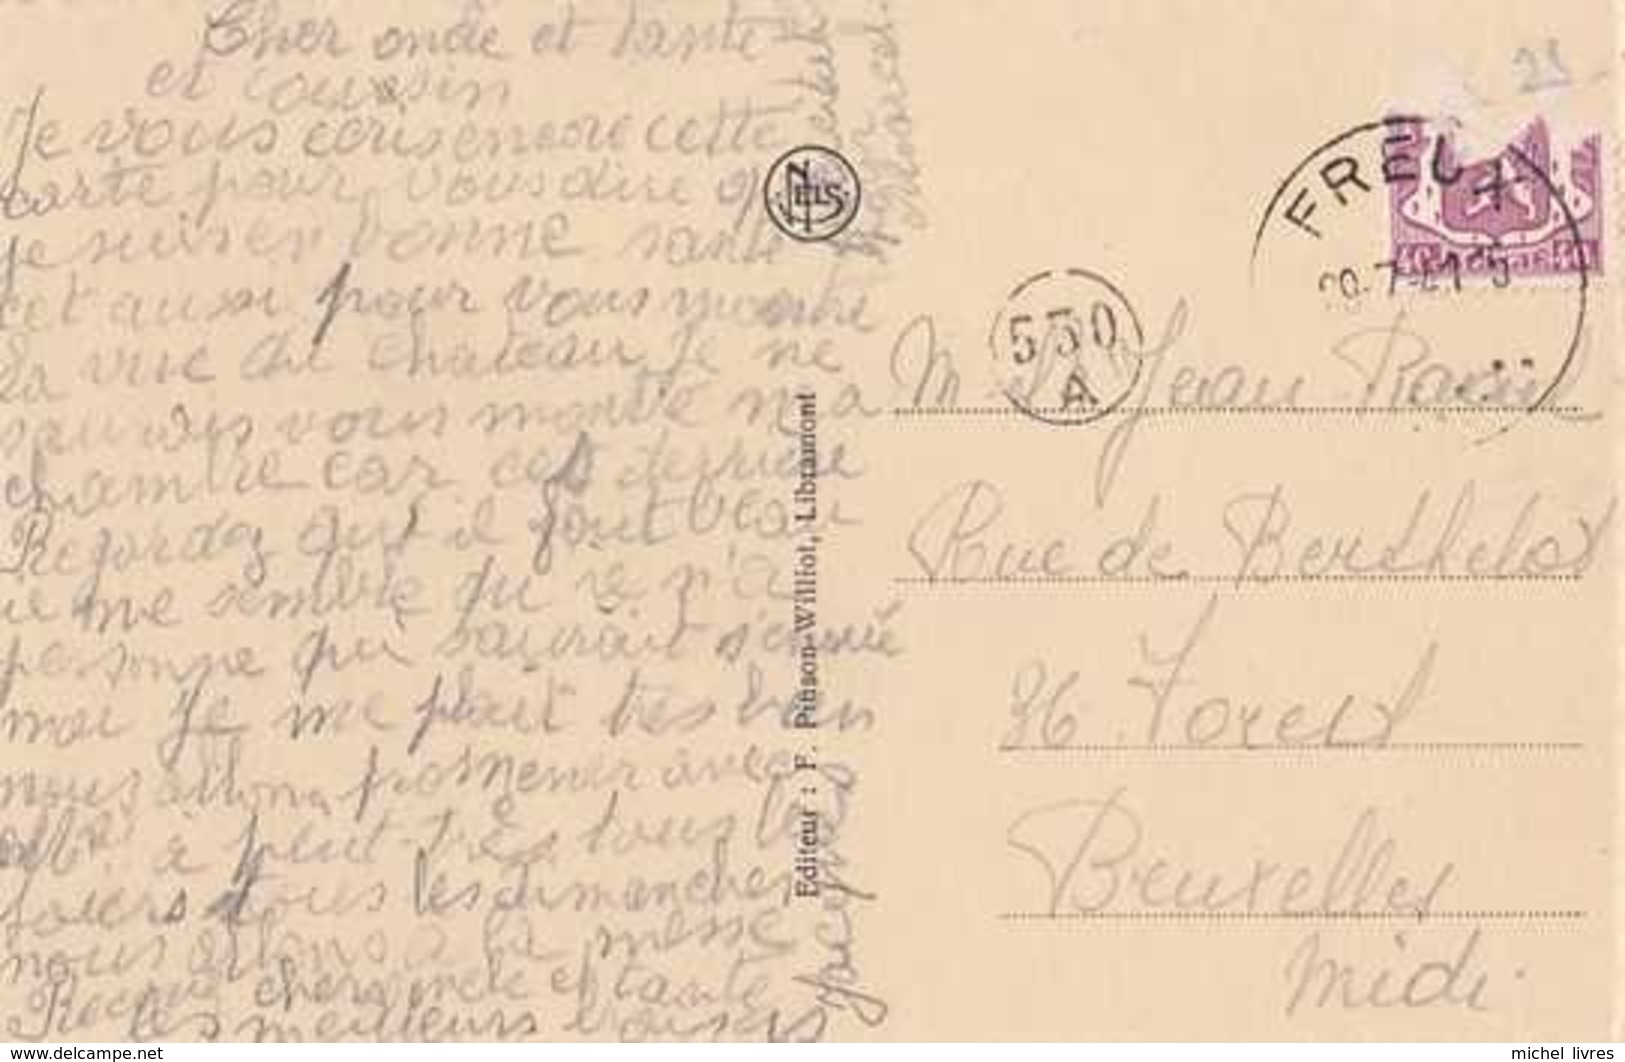 Cher oncle et tante
et cousin
Je vous écris encore cette
carte pour vous dire q
je suis en bonne santé
et aussi pour vous montre
la vue du chateau Je ne
vous montre ma
chambre car c'est derriere
Regardez qu'il fout beau
il me semble qu
personne qui saurait
moi Je me plait tres bien
nous allons promener avec
à peut-près tous les
jours tous les dimanches
nous allons à la messe
Recevez cher oncle et tante
les meilleurs baisers
NELS
Editeur : F. Pinson-Williot, Libramont
21
FREUX
20.7-41
40
550
A
M. Jean
Rue de Berthelot
36 Forest
Bruxelles
Midi.
www.delcampe.net
michel_livres